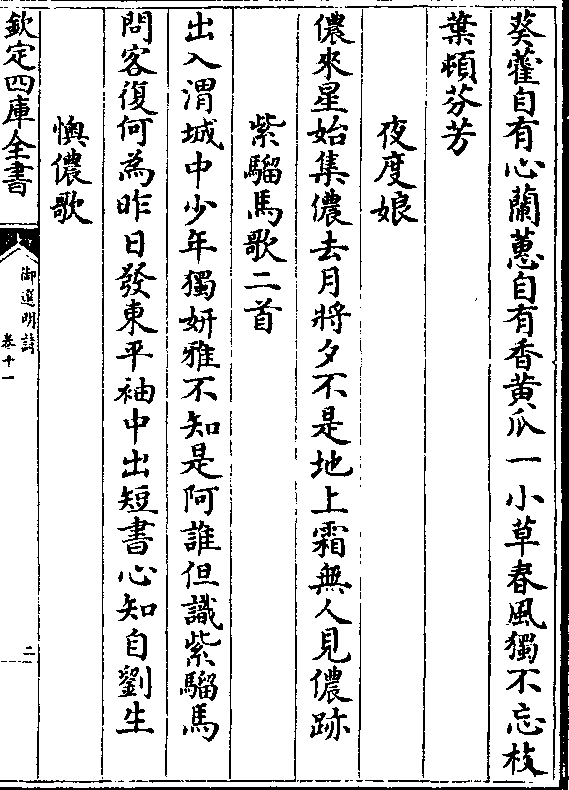 葵藿自有心蘭蕙自有香黄瓜一小草春風獨不忘枝
葉頓芬芳
夜度娘
儂來星始集儂去月將夕不是地上霜無人見儂跡
紫騮馬歌二首
出入渭城中少年獨妍雅不知是阿誰但識紫騮馬
問客復何為昨日發東平袖中出短書心知自劉生
懊儂歌
欽定四庫全書
御選明詩
卷十一
二